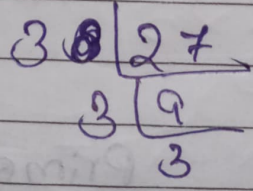 3 27
3 9
3